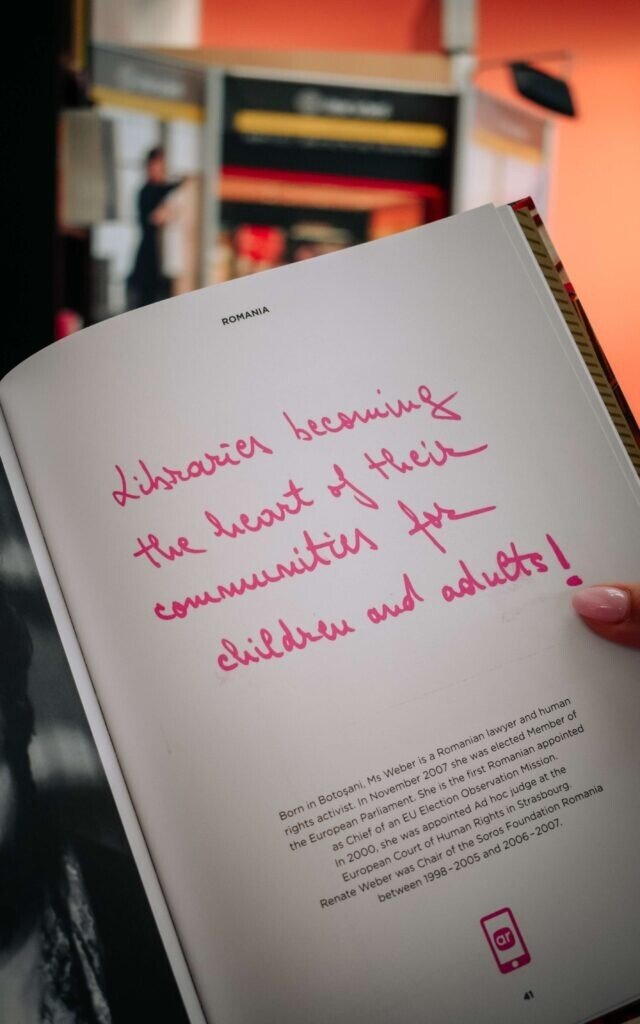 ROMANIA
Libraries becoming
the heart of their
communities for
children and adults!
Born in Botoșani, Ms Weber is a Romanian lawyer and human
rights activist. In November 2007 she was elected Member of
the European Parliament. She is the first Romanian appointed
as Chief of an EU Election Observation Mission.
In 2000, she was appointed Ad hoc judge at the
European Court of Human Rights in Strasbourg.
Renate Weber was Chair of the Soros Foundation Romania
between 1998–2005 and 2006–2007.
ar
41